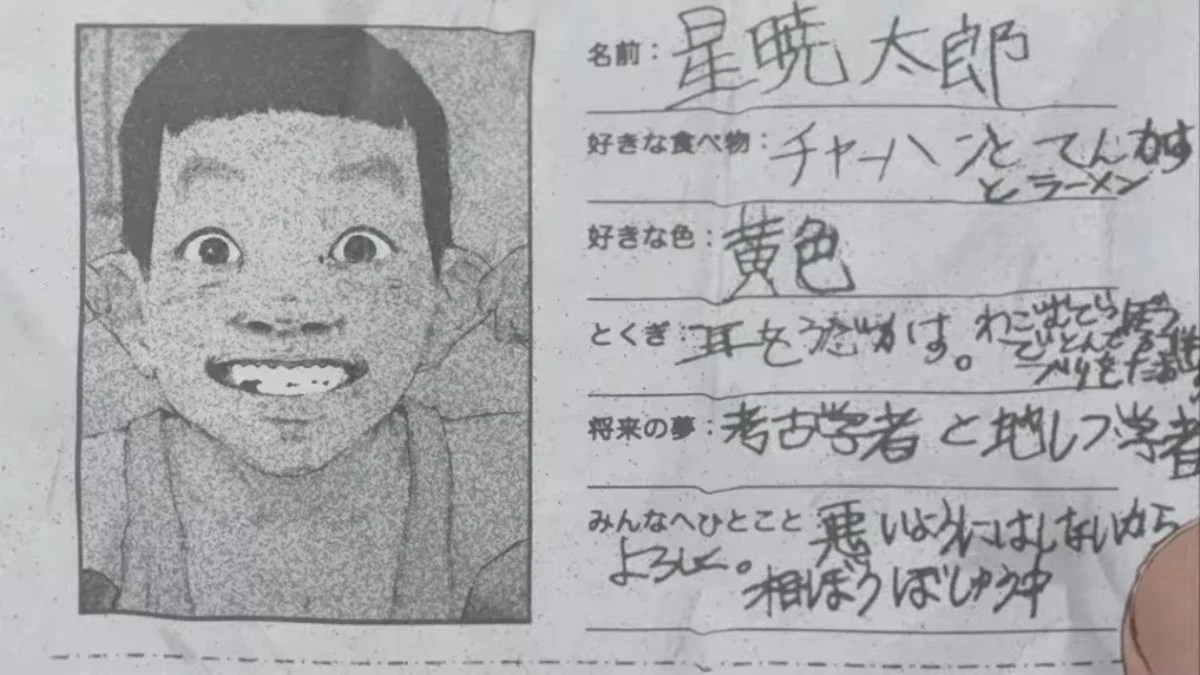 名前：星暁太郎
好きな食べ物：チャーハンとてんかす
とラーメン
好きな色：黄色
とくぎ：耳をうごかす。わごむでっぽう
でとんでる
をたお
将来の夢：考古学者と地しつ学者
みんなへひとこと 悪いようにはしないから
よろしく。
相ぼうぼしゅう中